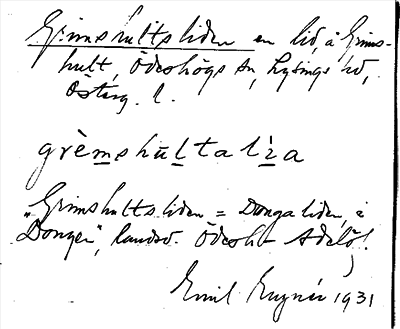 Grimshultsliden en lid, å Grims-
hult, Ödeshögs sn, Lysings hd,
Österg. l.
grèmshu̅ltali̇̀za
"Grimshultsliden = Dongaliden, å
Dongen", landsv. Ödesh - Adelö!
Emil 1931